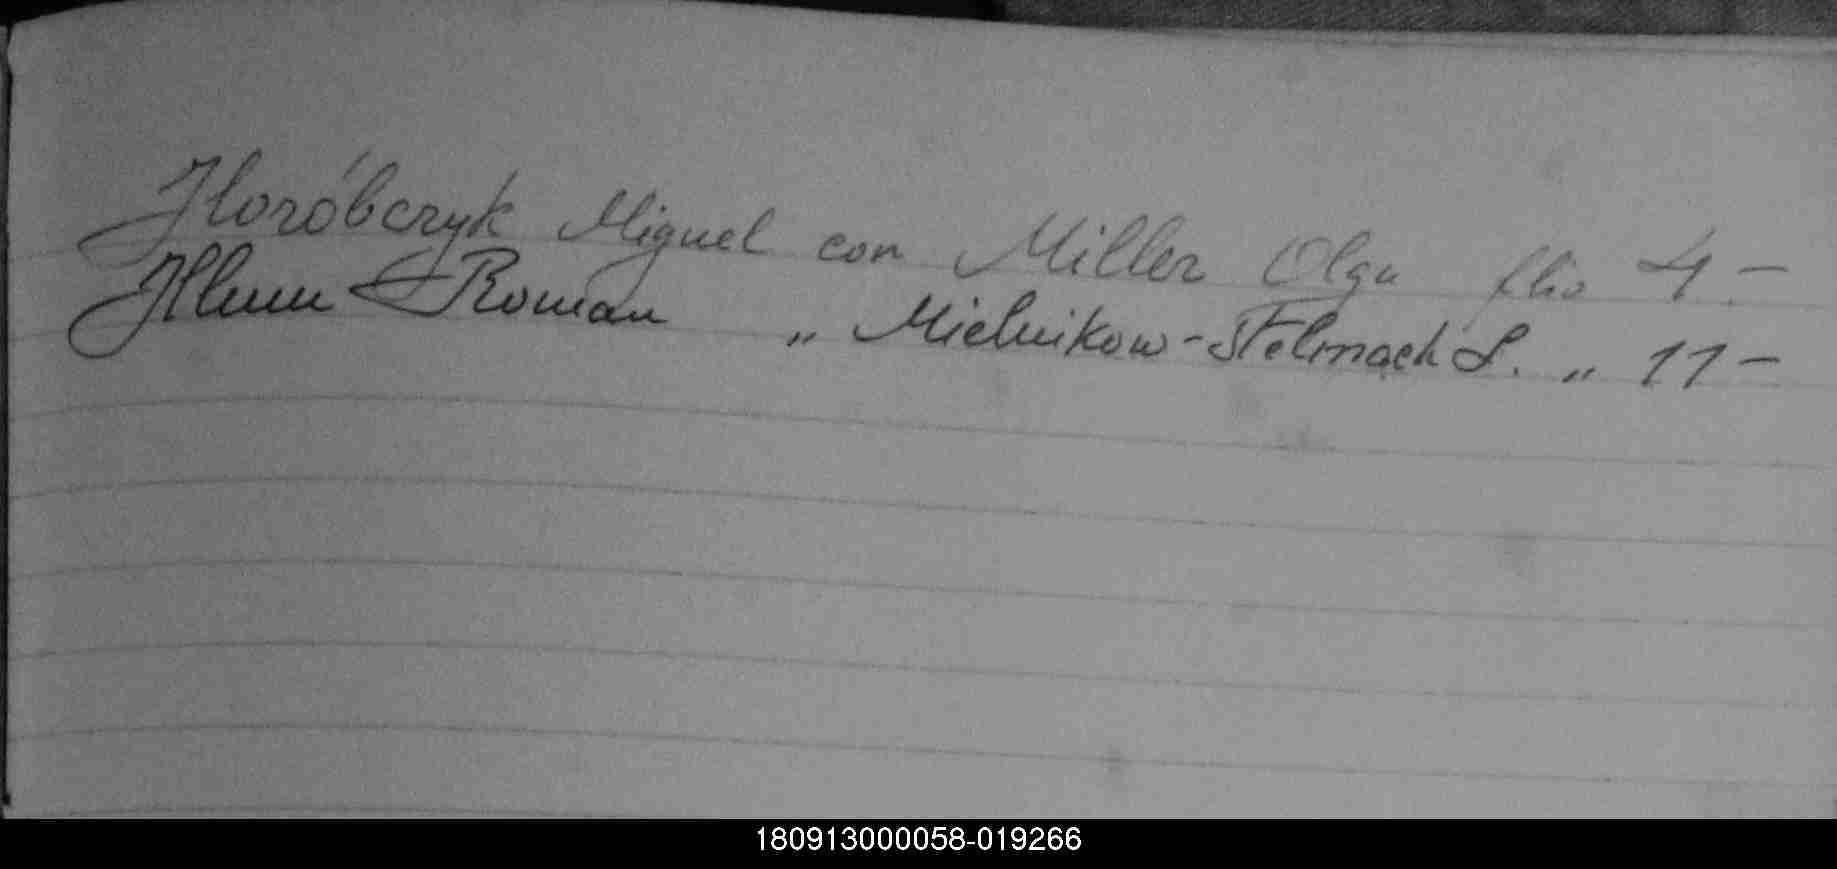 Horóbczyk Miguel con Miller Olga flio 4.-
Roman „ Mielnikow-Stelmach S. „ 11-
180913000058-019266